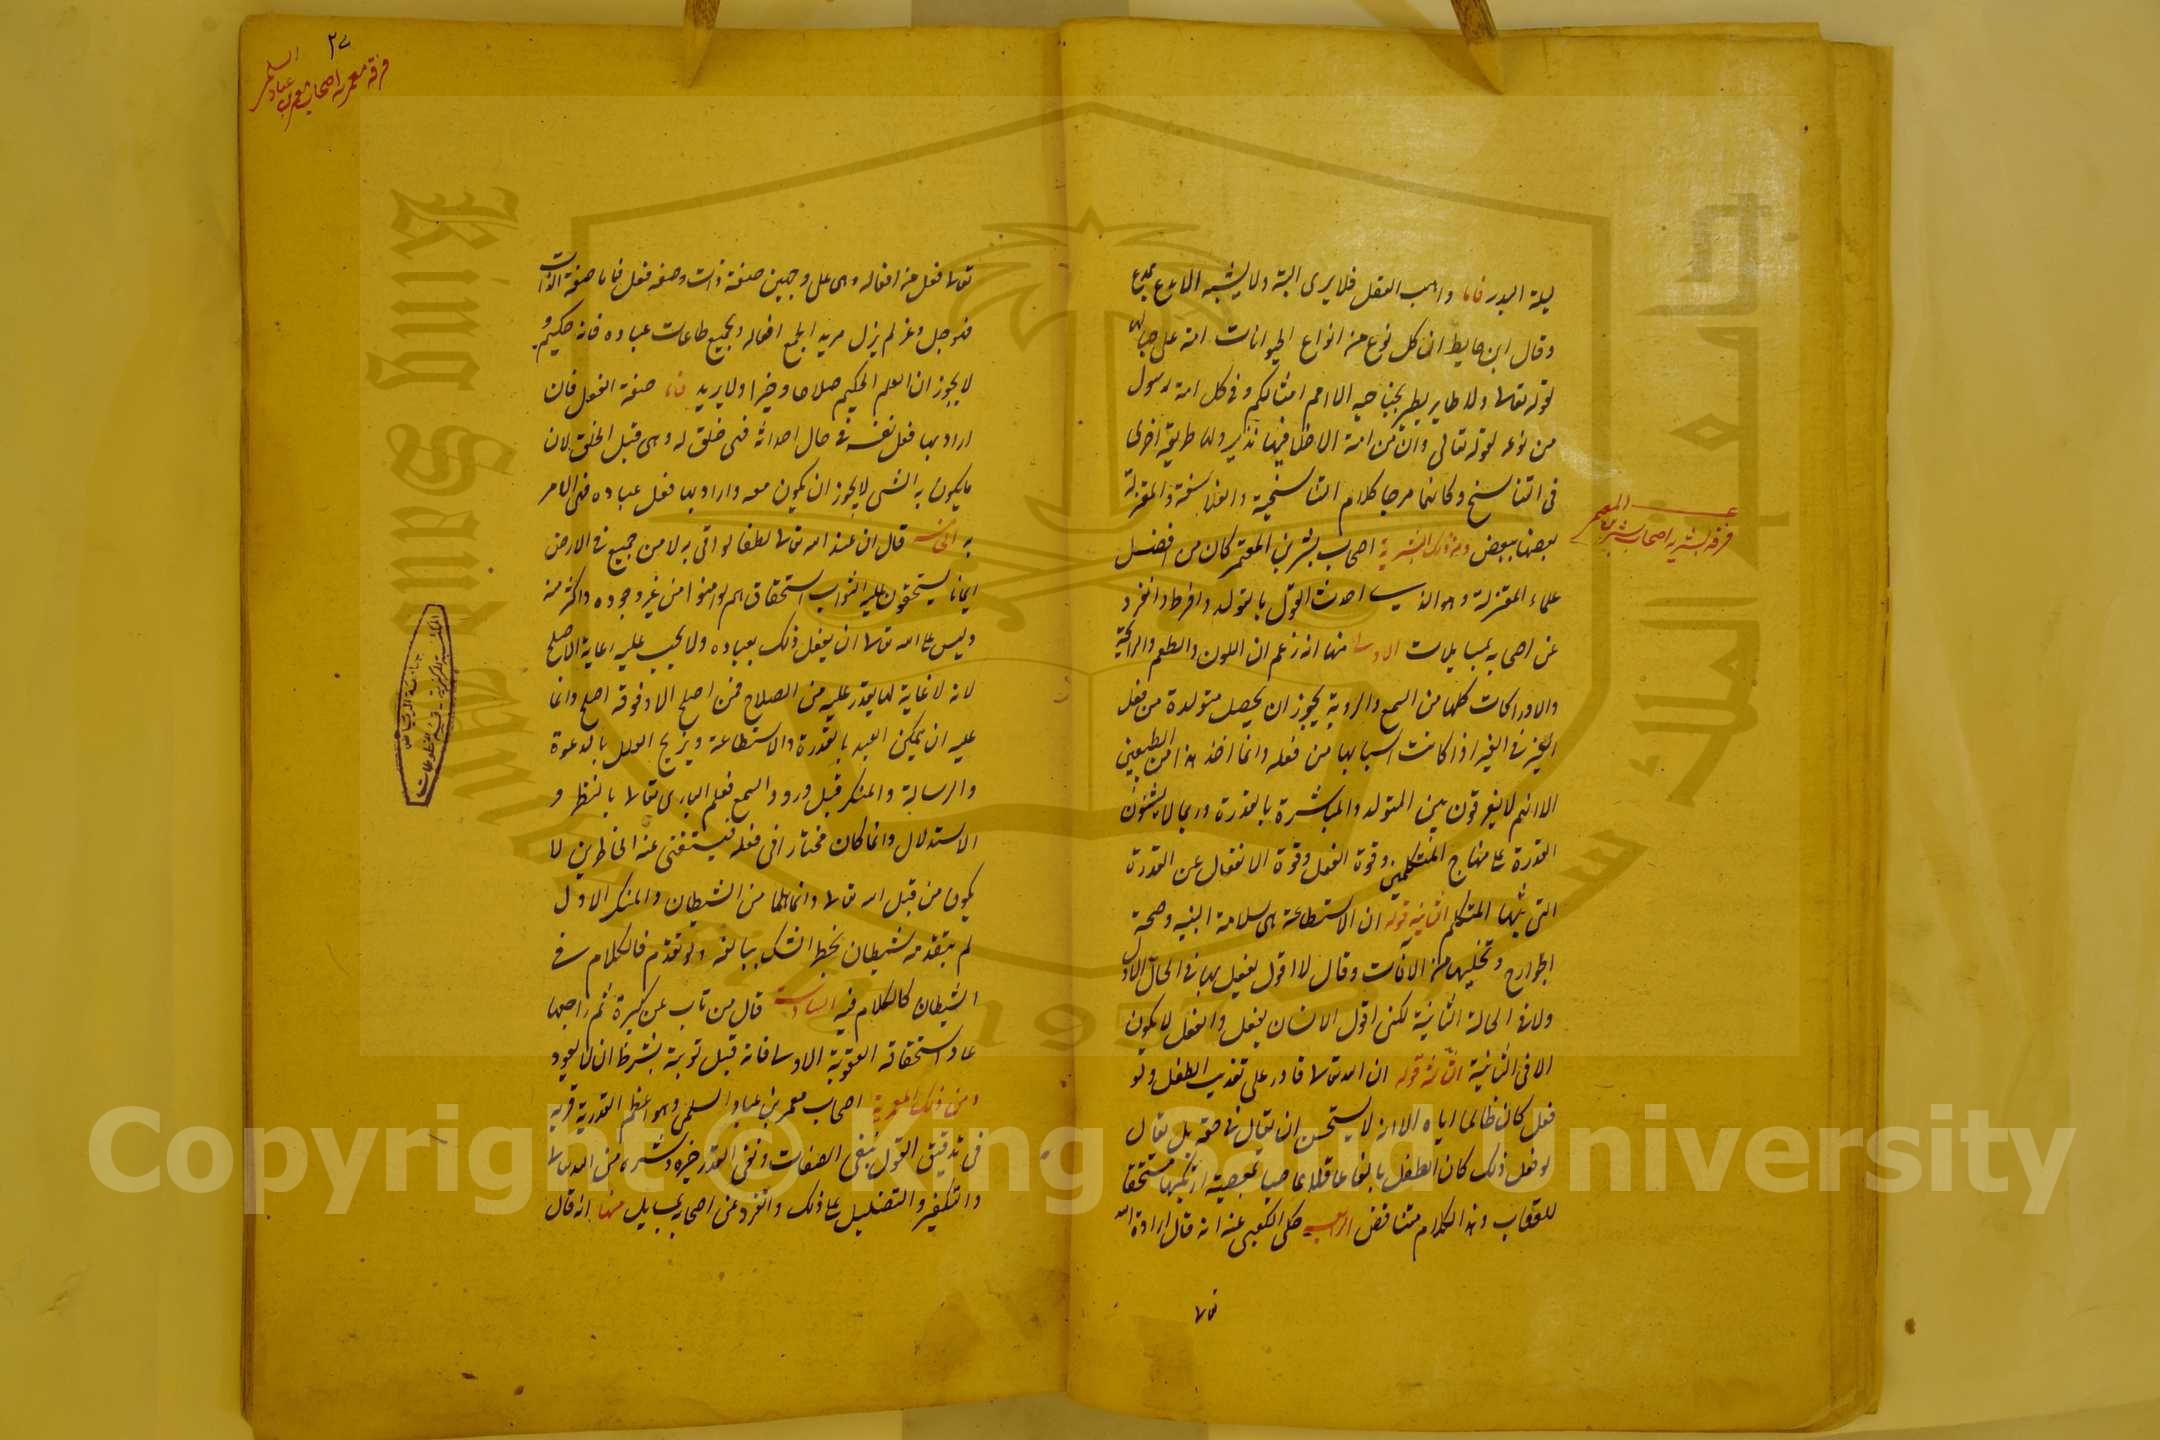 ليلة البدر فاما واهب العقل فلا يرى البتة ولا يشبه الا مبدع بمبدع
وقال ابن حايط ان كل نوع من انواع الحيوانات امة على حيالها
لقوله تعالى ولا طاير يطير بجناحيه الا امم امثالكم وفي كل امة رسول
من نوعه لقوله تعالى وان من امة الا خلا فيها نذير ولهما طريقة اخرى
في التناسخ وكانهما مزجا كلام التناسخية والفلاسفة والمعتزلة
بعضها ببعض ومن ذلك البشرية اصحاب بشر بن المعتمر كان من افضل
علماء المعتزلة وهو الذي احدث القول بالتولد وافرط وانفرد
عن اصحابه بمسايل ست الاولى منها انه زعم ان اللون والطعم والرائحة
والادراكات كلها من السمع والروية يجوز ان يحصل متولدة من فعل
الغير في الغير اذا كانت اسبابها من فعله وانما اخذ هذا من الطبعيين
الا انهم لا يفرقون بين المتولد والمباشرة بالقدرة وربما لا يثبتون
القدرة على منهاج المتكلمين وقوة الفعل وقوة الانفعال عن القدرة
التي يثبتها المتكلم الثانية قوله ان الاستطاعة هي سلامة البنية وصحة
الجوارح وتخليها من الآفات وقال لا اقول يفعل بها في الحال الاول
ولا في الحالة الثانية لكني اقول الانسان يفعل والفعل لا يكون
الا في الثانية الثالثة قوله ان الله تعالى قادر على تعذيب الطفل ولو
فعل كان ظالما اياه الا انه لا يستحسن ان يقال في حقه بل يقال
لو فعل ذلك كان الطفل بالغا عاقلا عاصيا بمعصية ارتكبها مستحقا
للعقاب وهذا كلام متناقض الرابعة حكى الكعبي عنه انه قال ارادة الله
تعالى
فرقه بشريه اصحاب بشر بن المعتمر
٢٧
فرقه معمريه اصحاب معمر بن عباد السلمي
تعالى فعل من افعاله وهي على وجهين صفة ذات وصفة فعل فاما صفة الذات
فهو جل وعز لم يزل مريدا لجميع افعاله ولجميع طاعات عباده فانه حكيم و
لا يجوز ان يعلم الحكيم صلاحا وخيرا ولا يريد فاما صفة الفعل فان
اراد بها فعل نفسه في حال احداثه فهي خلق له وهي قبل الخلق لان
ما يكون به الشي لا يجوز ان يكون معه واراد بها فعل عباده فهي الامر
به الخامسة قال ان عند الله تعالى لطفا لو اتى به لآمن جميع من في الارض
ايمانا يستحقون عليه الثواب استحقاقهم لو امنوا من غير وجوده واكثر منه
وليس على الله تعالى ان يفعل ذلك بعباده ولا يجب عليه رعاية الاصلح
لانه لا غاية لما يقدر عليه من الصلاح فمن اصلح الا وفوقه اصلح وانما
عليه ان يمكن العبد بالقدرة والاستطاعة ويزيح العلل بالدعوة
والرسالة والمفكر قبل ورود السمع فعلم الباري تعالى بالنظر و
الاستدلال واذا كان مختارا في فعله فيستغنى عن الخاطرين لا
يكونا من قبل الله تعالى وانما هما من الشيطان والمفكر الاول
لم يتقدمه شيطان يخطر الشك بباله ولو تقدم فالكلام في
الشيطان كالكلام فيه السادسة قال من تاب عن كبيرة ثم راجعها
عاد استحقاقه العقوبة الاولى فانه قبل توبته بشرط ان لا يعود
ومن ذلك المعمرية اصحاب معمر بن عباد السلمي وهو اعظم القدرية فرية
في تدقيق القول بنفي الصفات ونفي القدر خيره وشره من الله تعالى
والتكفير والتضليل على ذلك وانفرد عن اصحابه بمسايل منها انه قال
جامعة الرياض
المكتبة المركزية - قسم المخطوطات
King Saud University
جامعة الملك سعود
1957
Copyright © King Saud University